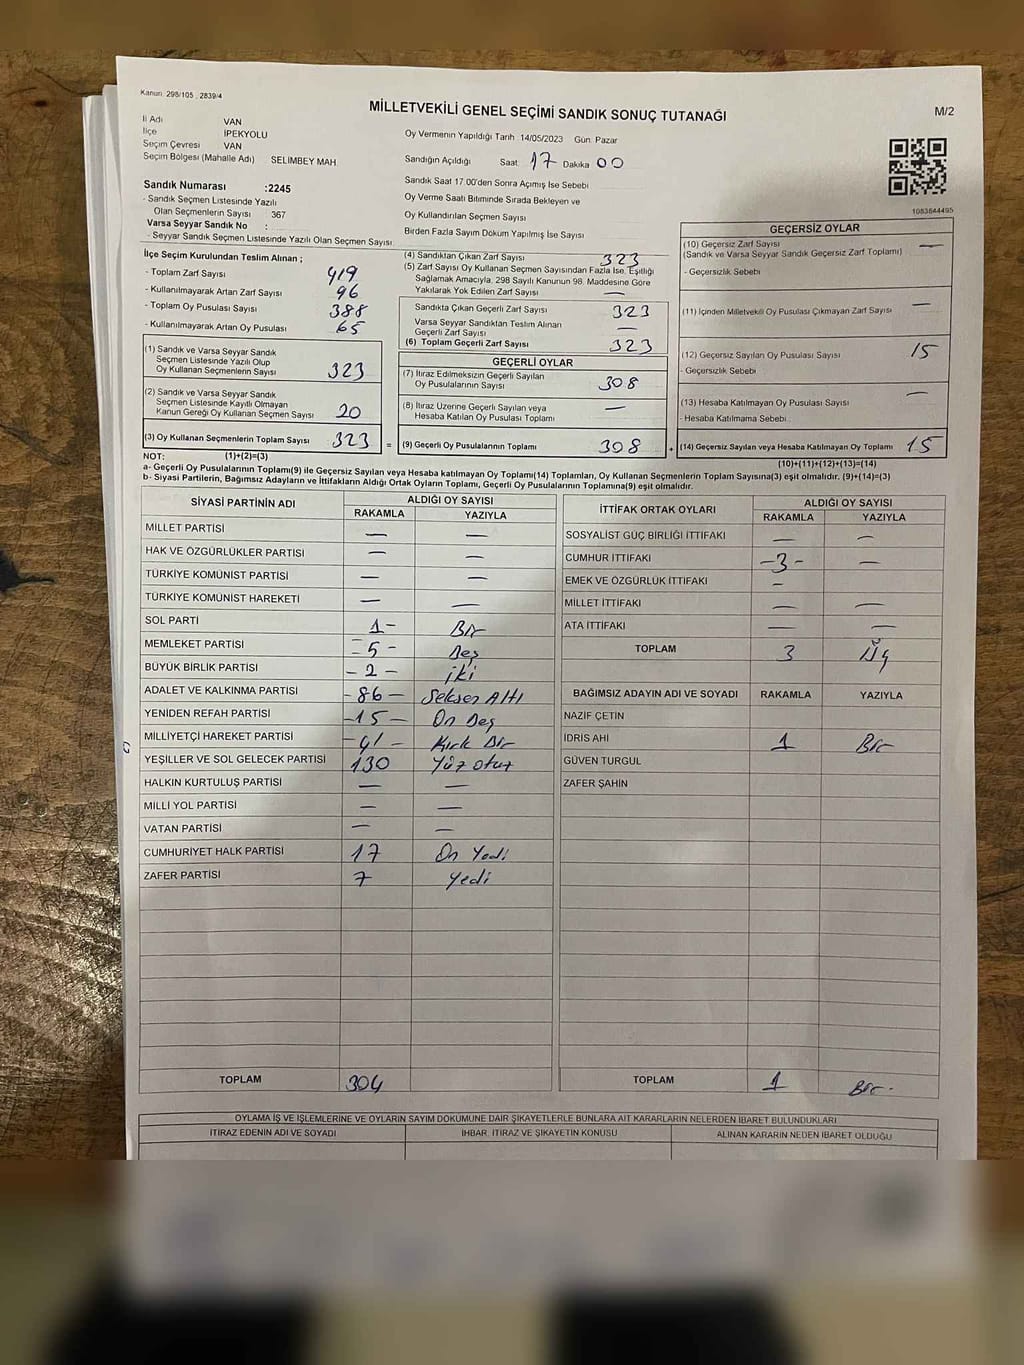 Kanun: 298/105 , 2839/4
MİLLETVEKİLİ GENEL SEÇİMİ SANDIK SONUÇ TUTANAĞI
M/2
İl Adı VAN
İlçe İPEKYOLU
Seçim Çevresi VAN
Seçim Bölgesi (Mahalle Adı) SELİMBEY MAH.
Oy Vermenin Yapıldığı Tarih 14/05/2023 Gün: Pazar
Sandığın Açıldığı Saat 17 Dakika 00
Sandık Saat 17.00'den Sonra Açımış İse Sebebi
Oy Verme Saati Bitiminde Sırada Bekleyen ve
Oy Kullandırılan Seçmen Sayısı
Birden Fazla Sayım Döküm Yapılmış İse Sayısı
1083644495
Sandık Numarası :2245
- Sandık Seçmen Listesinde Yazılı
Olan Seçmenlerin Sayısı 367
Varsa Seyyar Sandık No :
- Seyyar Sandık Seçmen Listesinde Yazılı Olan Seçmen Sayısı
İlçe Seçim Kurulundan Teslim Alınan ;
- Toplam Zarf Sayısı 419
- Kullanılmayarak Artan Zarf Sayısı 96
- Toplam Oy Pusulası Sayısı 388
- Kullanılmayarak Artan Oy Pusulası 65
(1) Sandık ve Varsa Seyyar Sandık
Seçmen Listesinde Yazılı Olup
Oy Kullanan Seçmenlerin Sayısı 323
(2) Sandık ve Varsa Seyyar Sandık
Seçmen Listesinde Kayıtlı Olmayan
Kanun Gereği Oy Kullanan Seçmen Sayısı 20
(3) Oy Kullanan Seçmenlerin Toplam Sayısı 323 =
(4) Sandıktan Çıkan Zarf Sayısı 323
(5) Zarf Sayısı Oy Kullanan Seçmen Sayısından Fazla İse, Eşitliği
Sağlamak Amacıyla, 298 Sayılı Kanunun 98. Maddesine Göre
Yakılarak Yok Edilen Zarf Sayısı —
Sandıkta Çıkan Geçerli Zarf Sayısı 323
Varsa Seyyar Sandıktan Teslim Alınan
Geçerli Zarf Sayısı —
(6) Toplam Geçerli Zarf Sayısı 323
GEÇERLİ OYLAR
(7) İtiraz Edilmeksizin Geçerli Sayılan
Oy Pusulalarının Sayısı 308
(8) İtiraz Üzerine Geçerli Sayılan veya
Hesaba Katılan Oy Pusulası Toplamı —
(9) Geçerli Oy Pusulalarının Toplamı 308 +
GEÇERSİZ OYLAR
(10) Geçersiz Zarf Sayısı —
(Sandık ve Varsa Seyyar Sandık Geçersiz Zarf Toplamı)
- Geçersizlik Sebebi
(11) İçinden Milletvekili Oy Pusulası Çıkmayan Zarf Sayısı —
(12) Geçersiz Sayılan Oy Pusulası Sayısı 15
- Geçersizlik Sebebi
(13) Hesaba Katılmayan Oy Pusulası Sayısı —
- Hesaba Katılmama Sebebi :
(14) Geçersiz Sayılan veya Hesaba Katılmayan Oy Toplamı 15
NOT: (1)+(2)=(3)
(10)+(11)+(12)+(13)=(14)
a- Geçerli Oy Pusulalarının Toplamı(9) ile Geçersiz Sayılan veya Hesaba katılmayan Oy Toplamı(14) Toplamları, Oy Kullanan Seçmenlerin Toplam Sayısına(3) eşit olmalıdır. (9)+(14)=(3)
b- Siyasi Partilerin, Bağımsız Adayların ve İttifakların Aldığı Ortak Oyların Toplamı, Geçerli Oy Pusulalarının Toplamına(9) eşit olmalıdır.
SİYASİ PARTİNİN ADI ALDIĞI OY SAYISI
RAKAMLA YAZIYLA
MİLLET PARTİSİ — —
HAK VE ÖZGÜRLÜKLER PARTİSİ — —
TÜRKİYE KOMÜNİST PARTİSİ — —
TÜRKİYE KOMÜNİST HAREKETİ — —
SOL PARTİ 1- Bir
MEMLEKET PARTİSİ -5- Beş
BÜYÜK BİRLİK PARTİSİ -2- iki
ADALET VE KALKINMA PARTİSİ -86- Seksen Altı
YENİDEN REFAH PARTİSİ -15- On Beş
MİLLİYETÇİ HAREKET PARTİSİ -41- Kırk Bir
YEŞİLLER VE SOL GELECEK PARTİSİ 130 Yüz otuz
HALKIN KURTULUŞ PARTİSİ — —
MİLLİ YOL PARTİSİ — —
VATAN PARTİSİ — —
CUMHURİYET HALK PARTİSİ 17 On Yedi
ZAFER PARTİSİ 7 Yedi
TOPLAM 304
İTTİFAK ORTAK OYLARI ALDIĞI OY SAYISI
RAKAMLA YAZIYLA
SOSYALİST GÜÇ BİRLİĞİ İTTİFAKI — —
CUMHUR İTTİFAKI -3- —
EMEK VE ÖZGÜRLÜK İTTİFAKI -
MİLLET İTTİFAKI — —
ATA İTTİFAKI — —
TOPLAM 3 Üç
BAĞIMSIZ ADAYIN ADI VE SOYADI RAKAMLA YAZIYLA
NAZİF ÇETİN
İDRİS AHİ 1 Bir
GÜVEN TURGUL
ZAFER ŞAHİN
TOPLAM 1 Bir.
OYLAMA İŞ VE İŞLEMLERİNE VE OYLARIN SAYIM DÖKÜMÜNE DAİR ŞİKAYETLERLE BUNLARA AİT KARARLARIN NELERDEN İBARET BULUNDUKLARI
İTİRAZ EDENİN ADI VE SOYADI İHBAR, İTİRAZ VE ŞİKAYETİN KONUSU ALINAN KARARIN NEDEN İBARET OLDUĞU